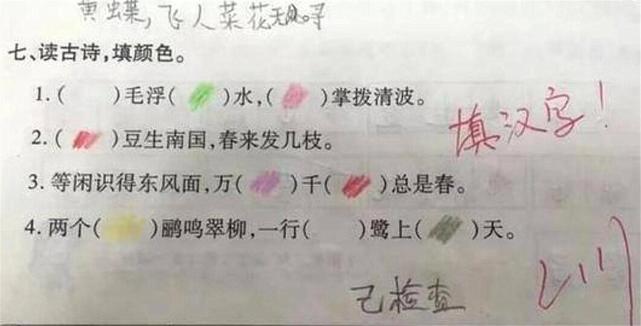 黄蝶,飞入菜花无处寻
七、读古诗,填颜色。
1.( )毛浮( )水,( )掌拨清波。
填汉字!
2.( )豆生南国,春来发几枝。
3.等闲识得东风面,万( )千( )总是春。
4.两个( )鹂鸣翠柳,一行( )鹭上( )天。
已检查